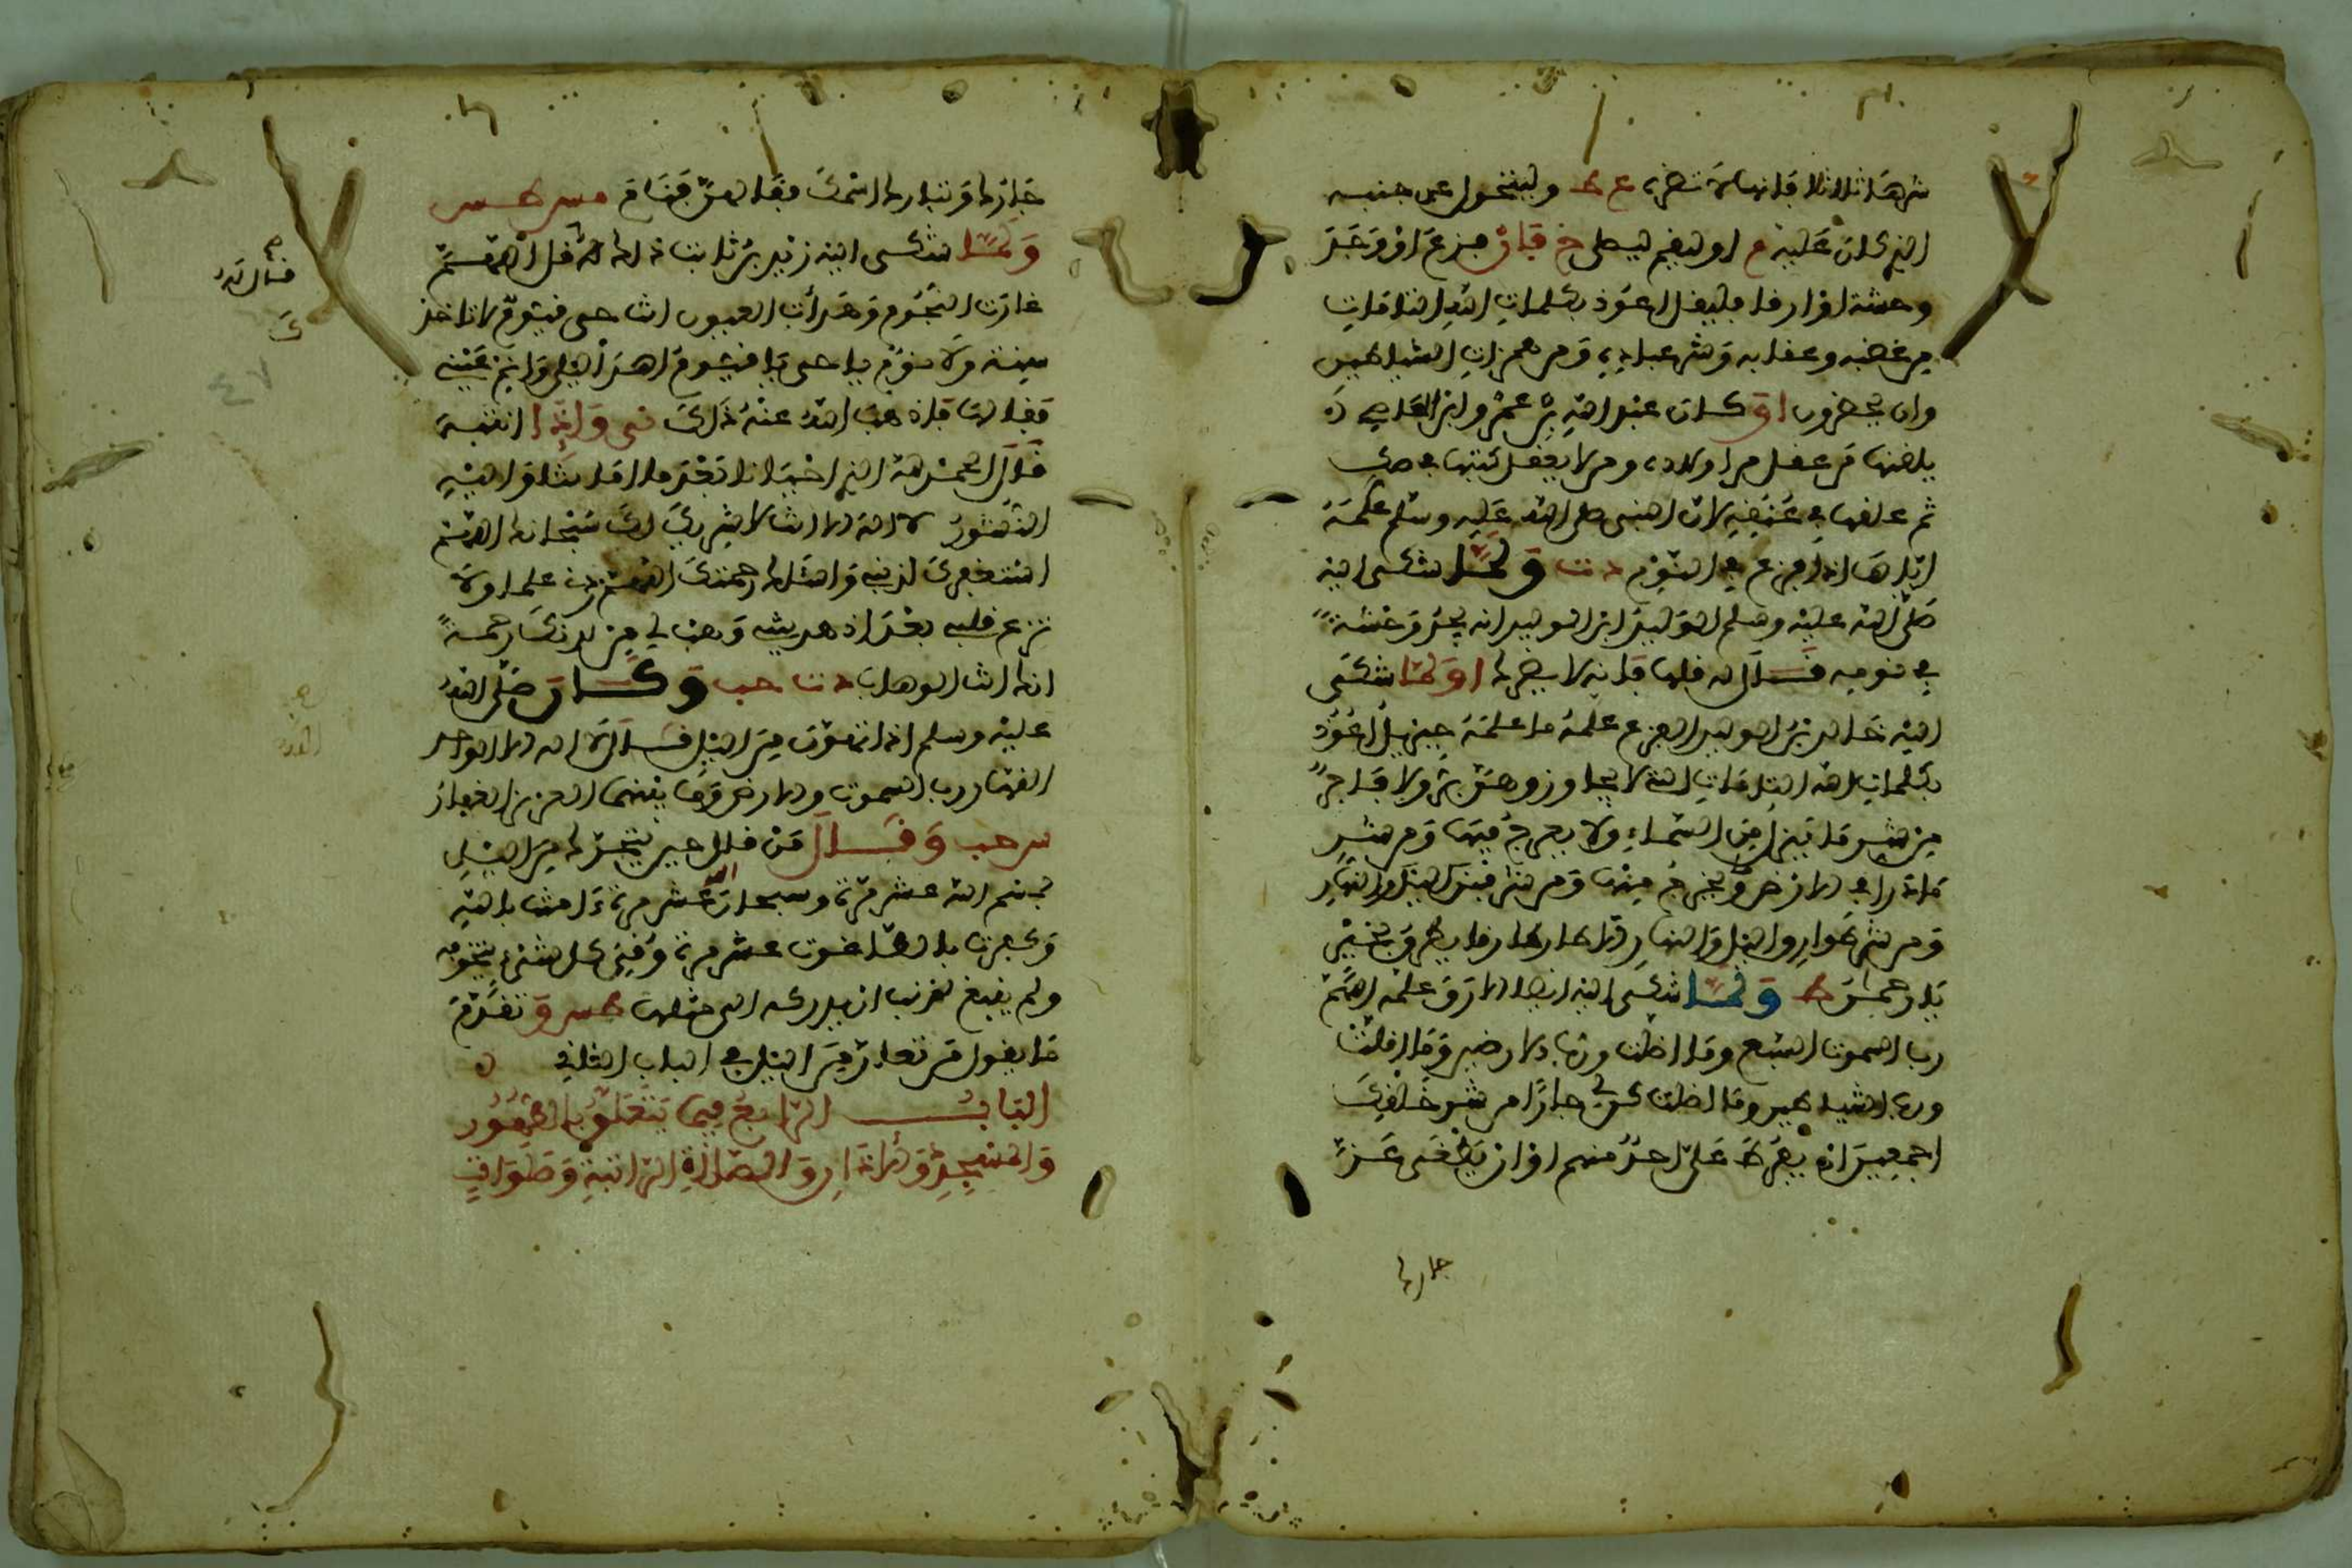 شرها ثلاثا فانها لا تضره ع ط وليتحول عن جنبه
الذي كان عليه م او ليقم ليصل خ فان فزع او وجد
وحشة او ارقا فليقل اعوذ بكلمات الله التامات
من غضبه وعقابه وشر عباده ومن همزات الشياطين
وان يحضرون او كان عبد الله بن عمرو بن العاصي
يلقنها من عقل من اولاده ومن لا يعقل كتبها في صك
ثم علقها في عنقه لان النبي صلى الله عليه وسلم علمه
اياها اذا فزع في النوم د ت ولما شكى اليه
صلى الله عليه وسلم الوليد ابن الوليد انه يجد وحشة
في نومه قال له قلها فانه لا يضرك او لما شكى
اليه خالد بن الوليد الفزع علمه ما علمه جبريل اعوذ
بكلمات الله التامات التي لا يجاوزهن بر ولا فاجر
من شر ما ينزل من السماء ولا يعرج فيها ومن شر
ما ذرا في الارض ويخرج منها ومن شر فتن الليل والنهار
ومن شر طوارق الليل والنهار الا طارقا يطرق بخير
يا رحمن ط ولما شكى اليه ايضا الارق علمه اللهم
رب السموت السبع وما اظلت ورب الارضين وما اقلت
ورب الشياطين وما اضلت كن لي جارا من شر خلقك
اجمعين ان يفرط علي احد منهم او ان يطغى عز
جارك
جارك وتبارك اسمك فقالهن فنام مس طس
ولما شكى اليه زيد بن ثابت ذلك قال قل اللهم
غارت النجوم وهدأت العيون انت حي قيوم لا تاخذك
سنة ولا نوم يا حي يا قيوم اهد ليلي وانم عيني
فقالها فاذهب الله عنه ذلك ني واذا انتبه
قال الحمد لله الذي احيانا بعد ما اماتنا واليه
النشور لا اله الا انت لا شريك لك سبحانك اللهم
استغفرك لذنبي واسئلك رحمتك اللهم زدني علما ولا
تزغ قلبي بعد اذ هديتني وهب لي من لدنك رحمة
انك انت الوهاب د ت حب وكان صلى الله
عليه وسلم اذا تعار من الليل قال لا اله الا الله الواحد
القهار رب السموت والارض وما بينهما العزيز الغفار
س حب وقال من قال حين يتحرك من الليل
بسم الله عشر مرة وسبحان الله عشر مرة ءامنت بالله
وكفرت بالطاغوت عشر مرة وقي كل شيء يتخوفه
ولم ينبغ لذنب ان يدركه الى مثلها طس وتقدم
ما يقول من تعار من الليل في الباب الثاني ه
الباب الرابع فيما يتعلق بالطهور
والمسجد والاذان والصلاة الراتبة وصلوات